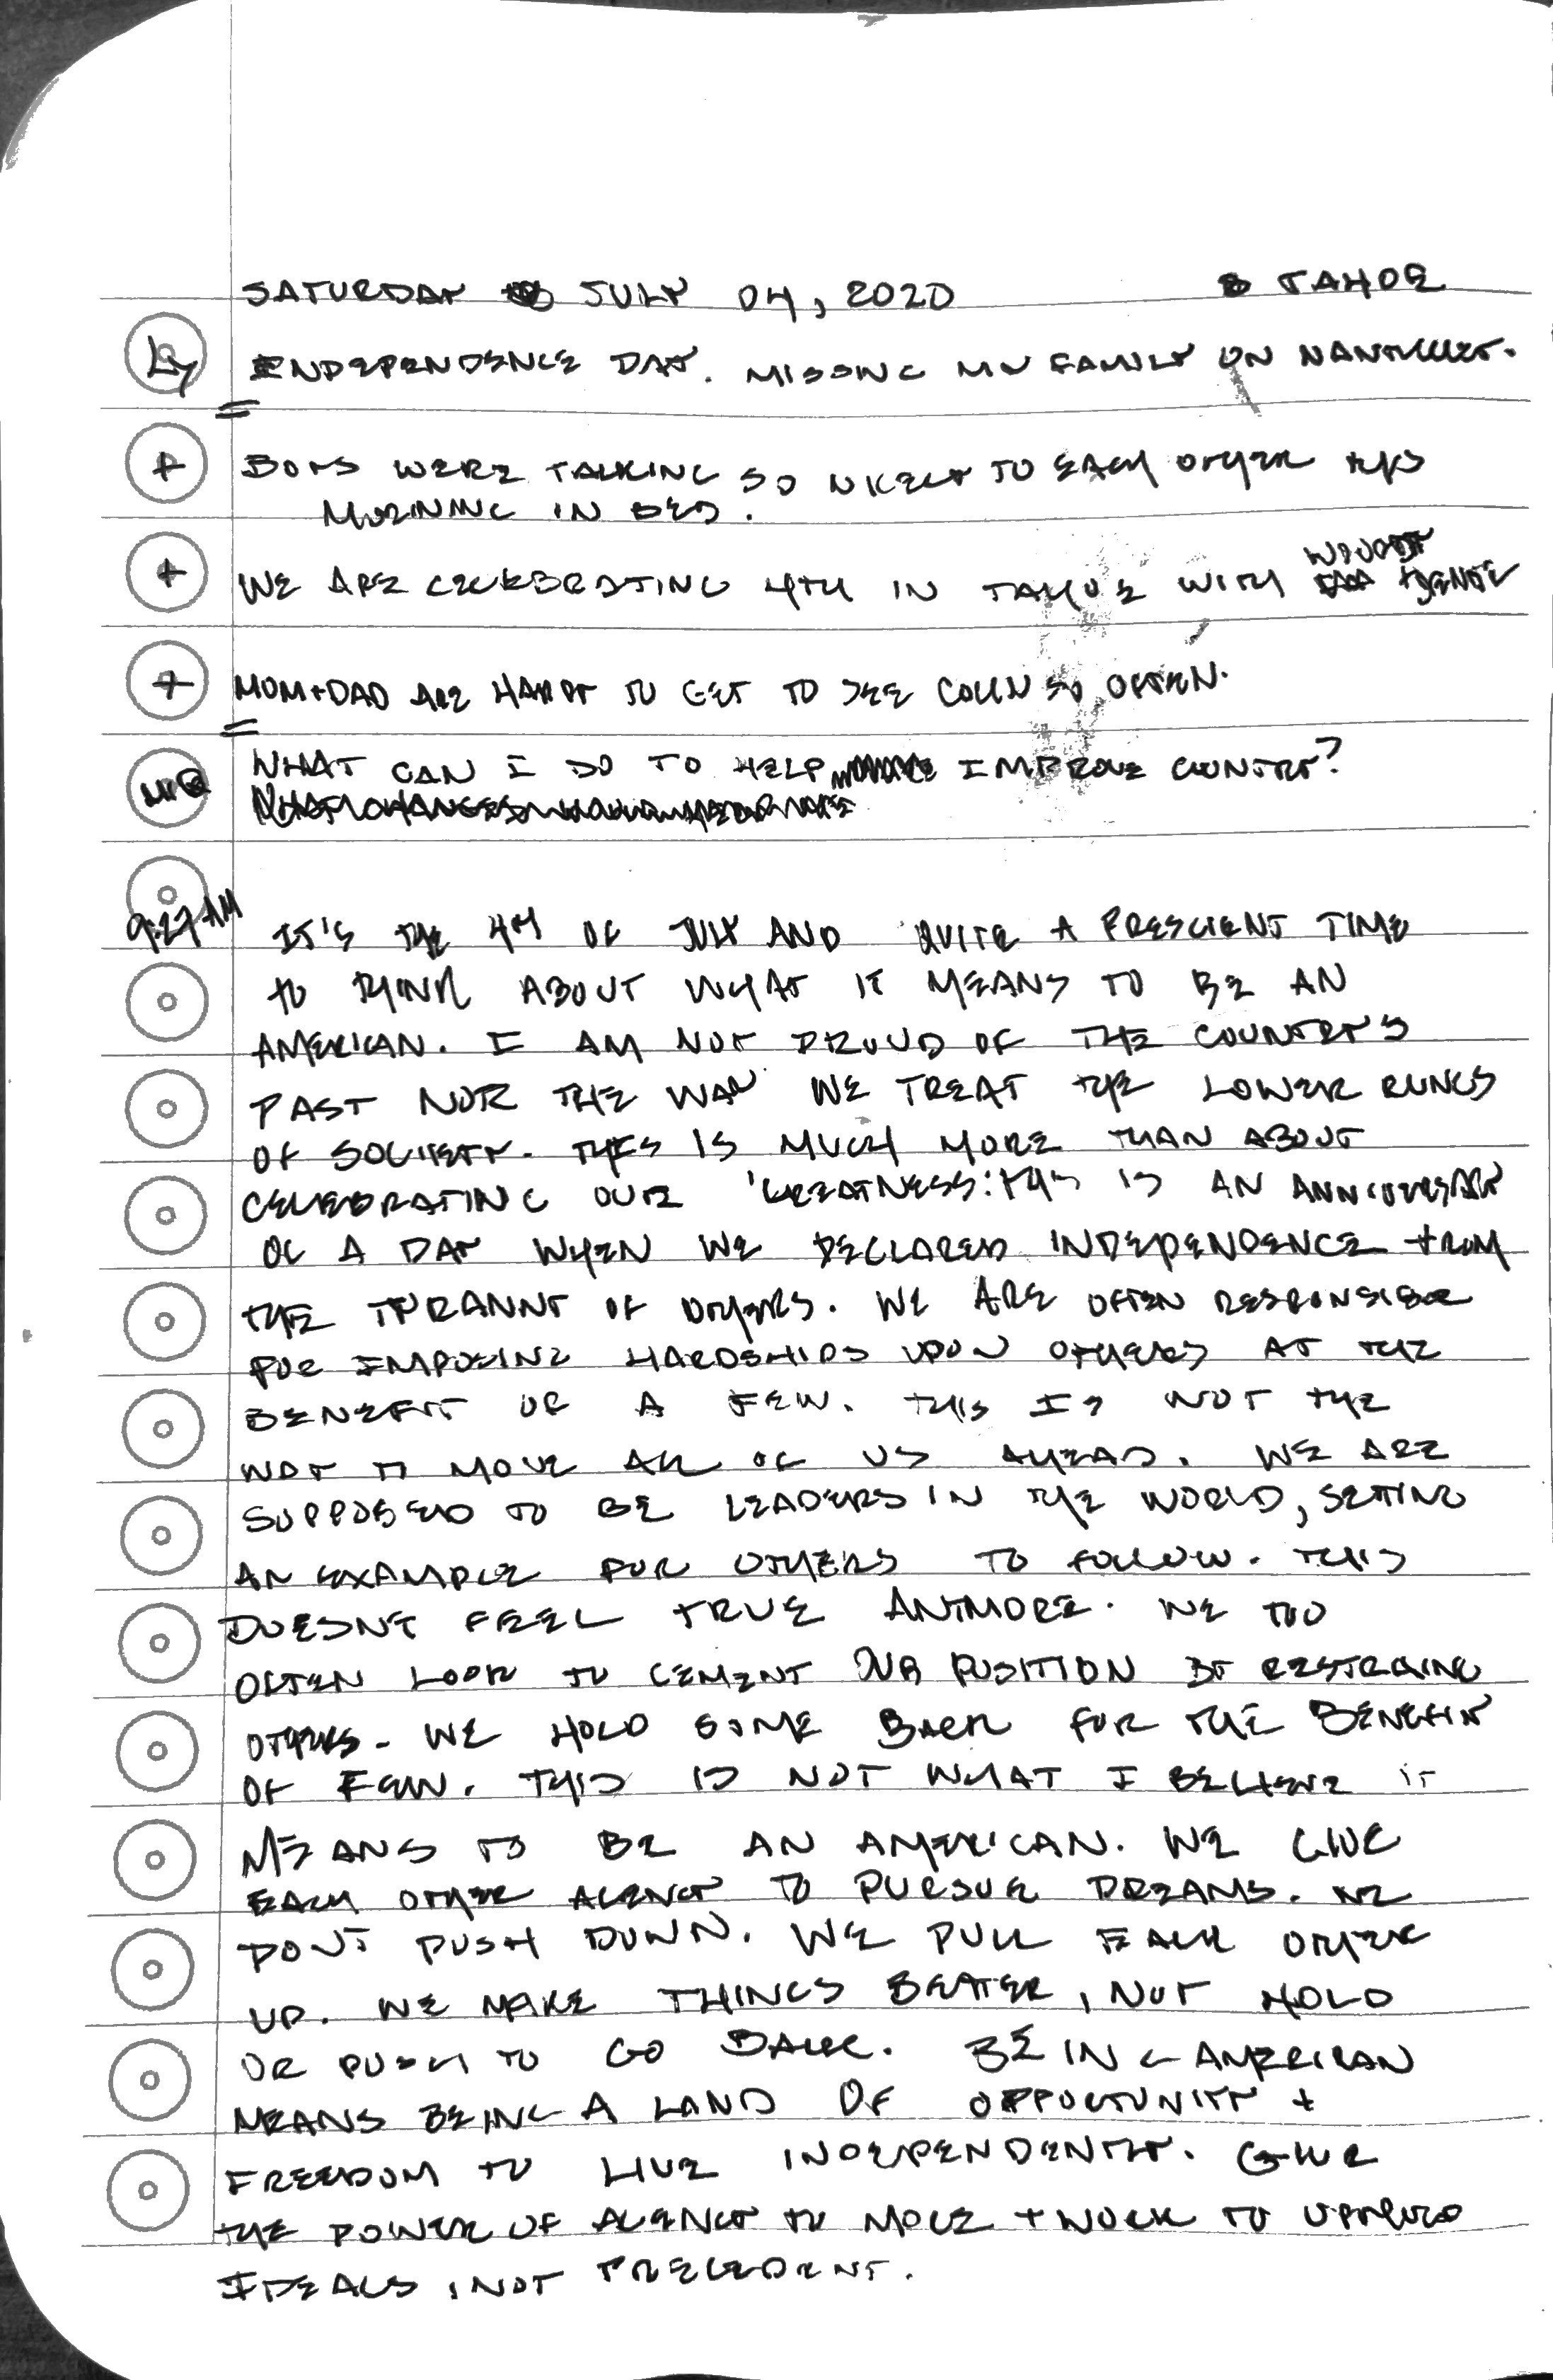 SATURDAY JULY 04, 2020 TAHOE
Ly INDEPENDENCE DAY. MISSING MY FAMILY ON NANTUCKET.
+ BOYS WERE TALKING SO NICELY TO EACH OTHER THIS
MORNING IN BED.
+ WE ARE CELEBRATING 4TH IN TAHOE WITH
+ MOM+DAD ARE HAPPY TO GET TO SEE COLIN SO OFTEN.
WHAT CAN I DO TO HELP IMPROVE COUNTRY?
9:27 AM IT'S THE 4TH OF JULY AND QUITE A PRESCIENT TIME
TO THINK ABOUT WHAT IT MEANS TO BE AN
AMERICAN. I AM NOT PROUD OF THE COUNTRY'S
PAST NOR THE WAY WE TREAT THE LOWER RUNGS
OF SOCIETY. THIS IS MUCH MORE THAN ABOUT
CELEBRATING OUR 'GREATNESS.' THIS IS AN ANNIVERSARY
OF A DAY WHEN WE DECLARED INDEPENDENCE FROM
THE TYRANNY OF OTHERS. WE ARE OFTEN RESPONSIBLE
FOR IMPOSING HARDSHIPS UPON OTHERS AT THE
BENEFIT OF A FEW. THIS IS NOT THE
WAY TO MOVE ALL OF US AHEAD. WE ARE
SUPPOSED TO BE LEADERS IN THE WORLD, SETTING
AN EXAMPLE FOR OTHERS TO FOLLOW. THIS
DOESN'T FEEL TRUE ANYMORE. WE TOO
OFTEN LOOK TO CEMENT OUR POSITION BY RESTRAINING
OTHERS. WE HOLD SOME BACK FOR THE BENEFIT
OF FEW. THIS IS NOT WHAT I BELIEVE IT
MEANS TO BE AN AMERICAN. WE GIVE
EACH OTHER AGENCY TO PURSUE DREAMS. WE
DON'T PUSH DOWN. WE PULL EACH OTHER
UP. WE MAKE THINGS BETTER, NOT HOLD
OR PUSH TO GO BACK. BEING AMERICAN
MEANS BEING A LAND OF OPPORTUNITY +
FREEDOM TO LIVE INDEPENDENTLY. GIVE
THE POWER OF AGENCY TO MOVE + WORK TO UPHOLD
IDEALS, NOT PRECEDENT.